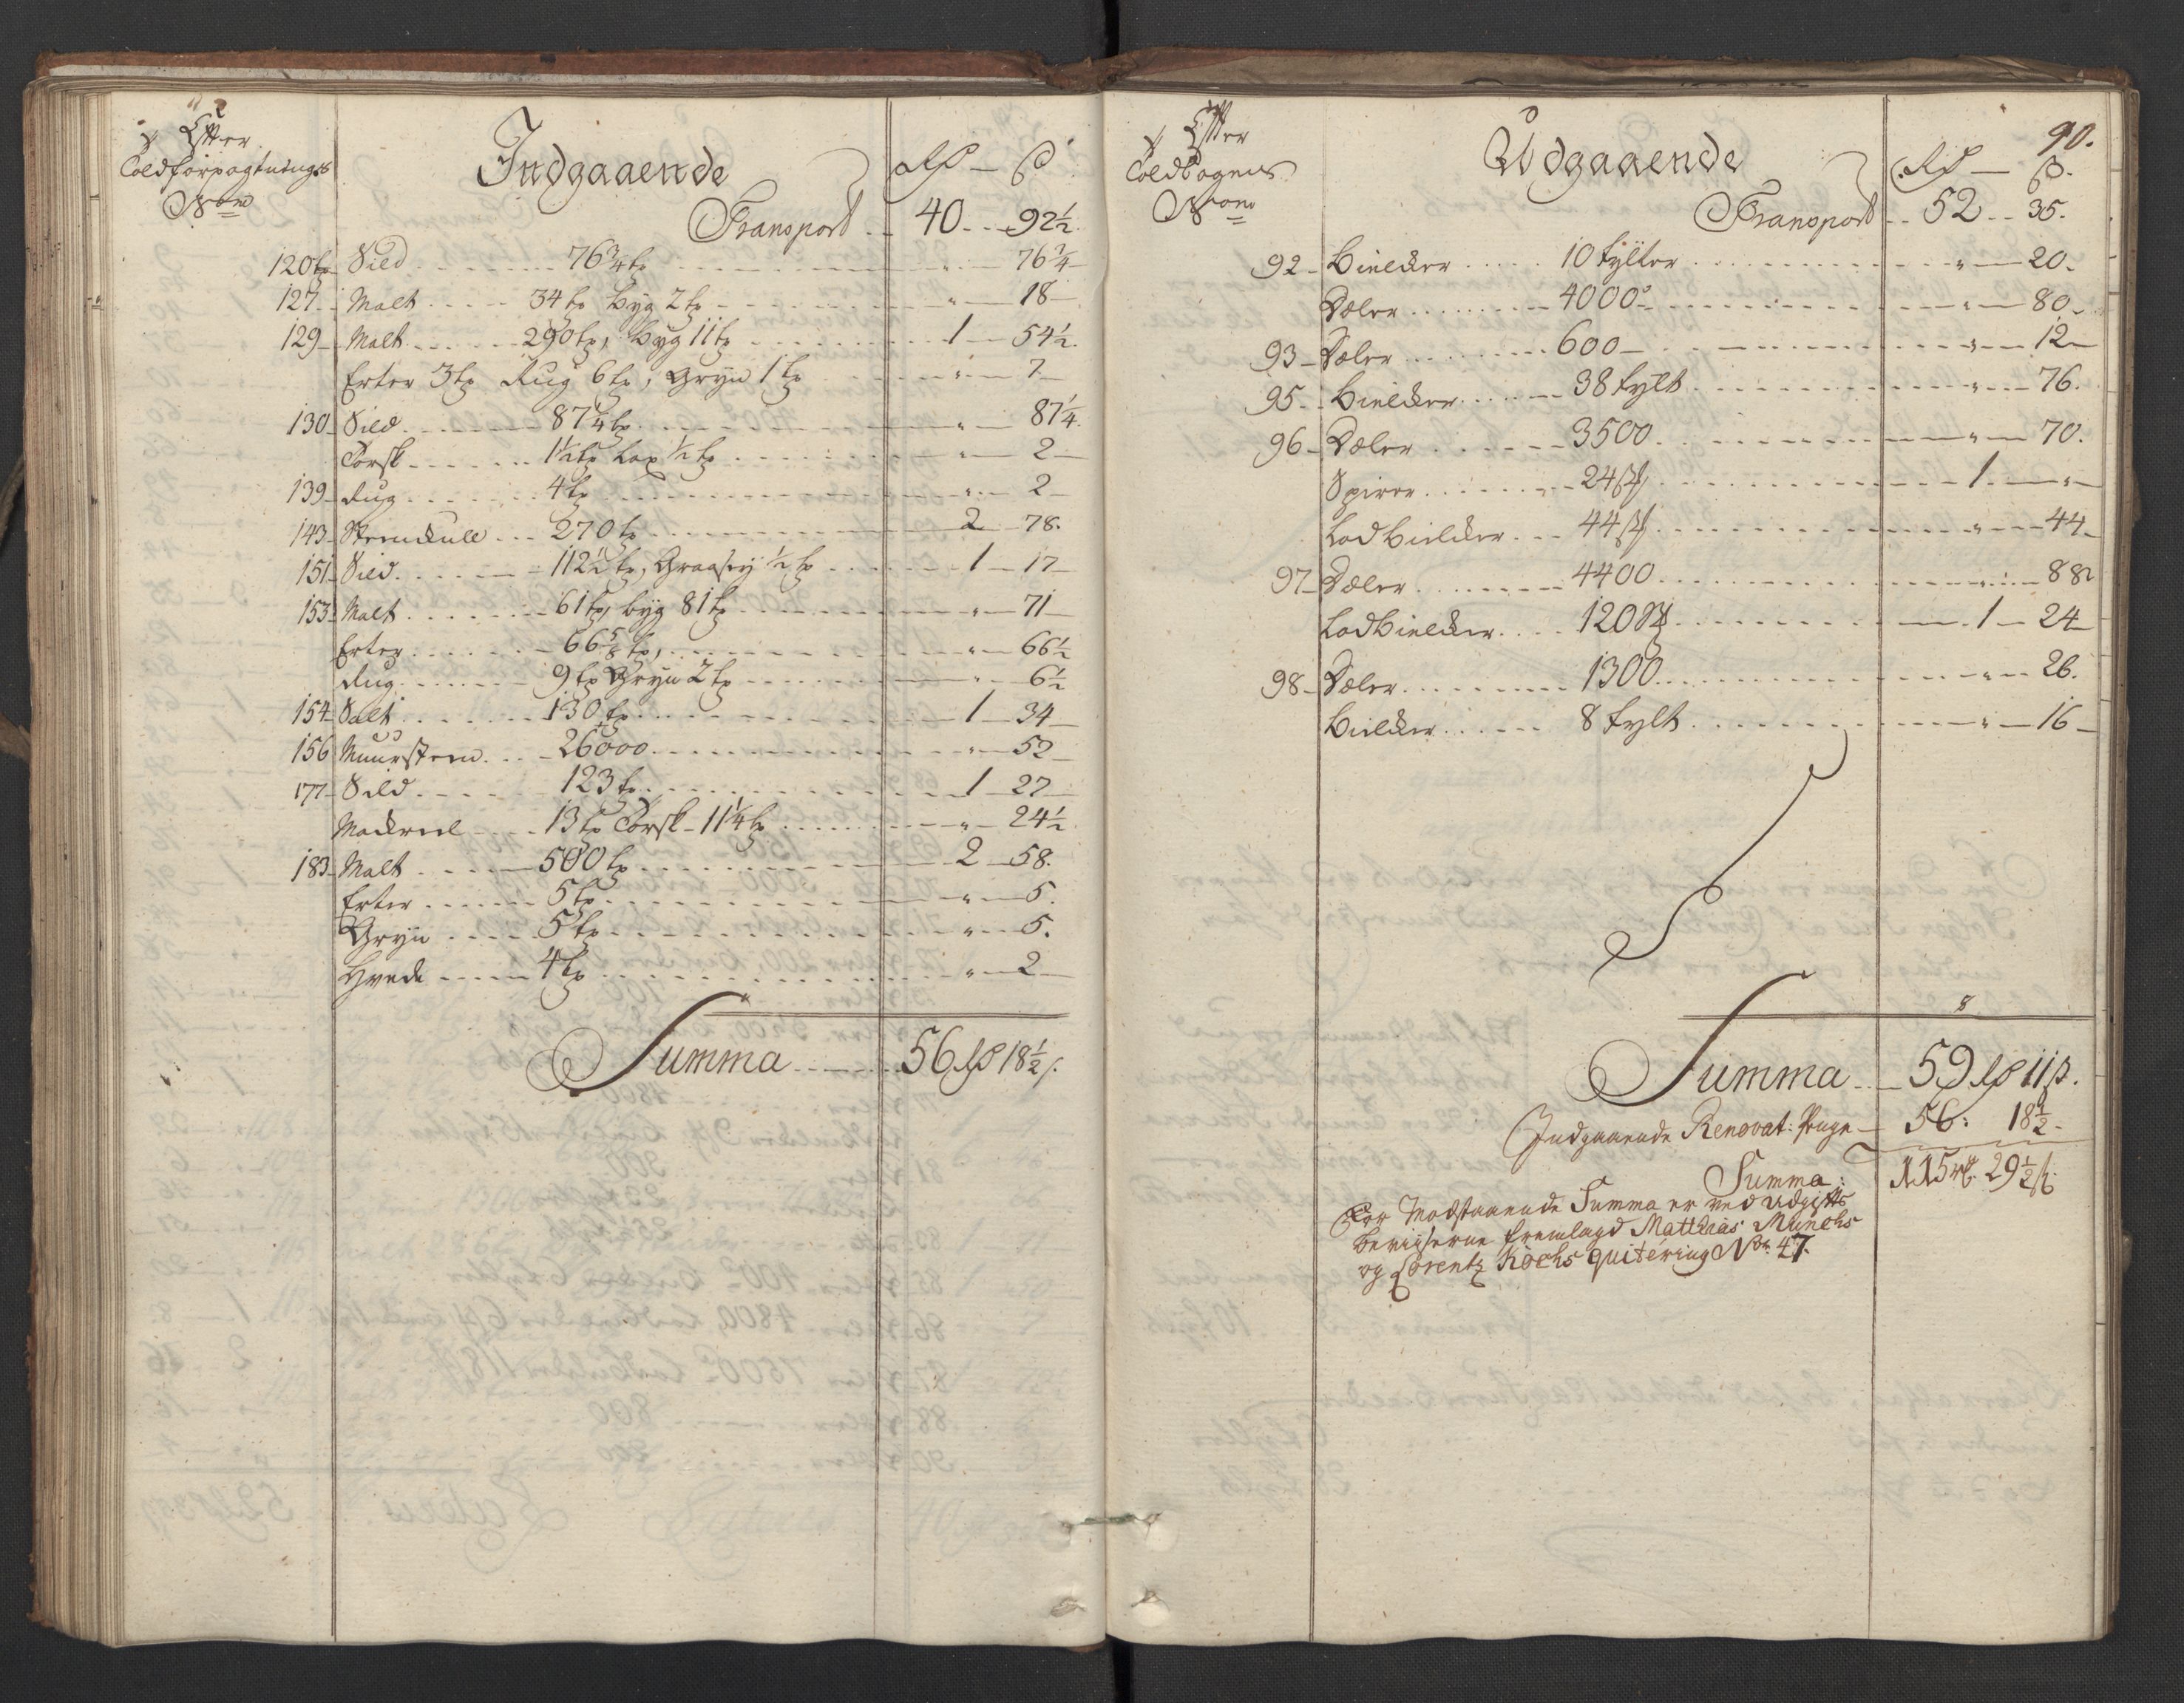 Efter
Toldforpagtnings
No
Indgaaende
Rd — ß
Transport 40 92½
120 Sild 76¾ tr " 76¾
127 Malt 34 tr Byg 2 tr " 18
129 Malt 290 tr, Byg 11 tr 1 54½
Erter 3 tr Rug 6 tr, Gryn 1 tr " 7
130 Sild 87¼ tr " 87¼
Torsk 1½ tr Lax ½ tr " 2
139 Rug 4 tr " 2
143 Steenkull 270 tr 2 78
151 Sild 112½ tr, Graasey ½ tr 1 17
153 Malt 61 tr, Byg 81 tr " 71
Erter 66⅝ tr, " 66½
Rug 9 tr Gryn 2 tr " 6½
154 Salt 130 tr 1 34
156 Muursteen 26000 " 52
177 Sild 123 tr 1 27
Mackreel 13 tr Torsk 11¼ tr " 24½
183 Malt 500 tr 2 58
Erter 5 tr " 5
Gryn 5 tr " 5
Hvede 4 tr " 2
Summa 56 Rd 18½ ß
90.
Efter
Toldbogens
No
Udgaaende
Rd — ß
Transport 52 35
92 Bielcker 10 tylter " 20
Dæler 4000 " 80
93 Dæler 600 " 12
95 Bielcker 38 tylt " 76
96 Dæler 3500 " 70
Spirer 24 st 1 "
Lodbielcker 44 st " 44
97 Dæler 4400 " 88
Lodbielcker 120 st 1 24
98 Dæler 1300 " 26
Bielcker 8 tylt " 16
Summa 59 Rd 11 ß.
Indgaaende Renovat: Penge 56: 18½
Summa: 115 rd 29½ ß
For Modstaaende Summa er ved Udgifts
beviiserne fremlagd Matthias Münchs
og Lorentz Kochs quitering No 47.